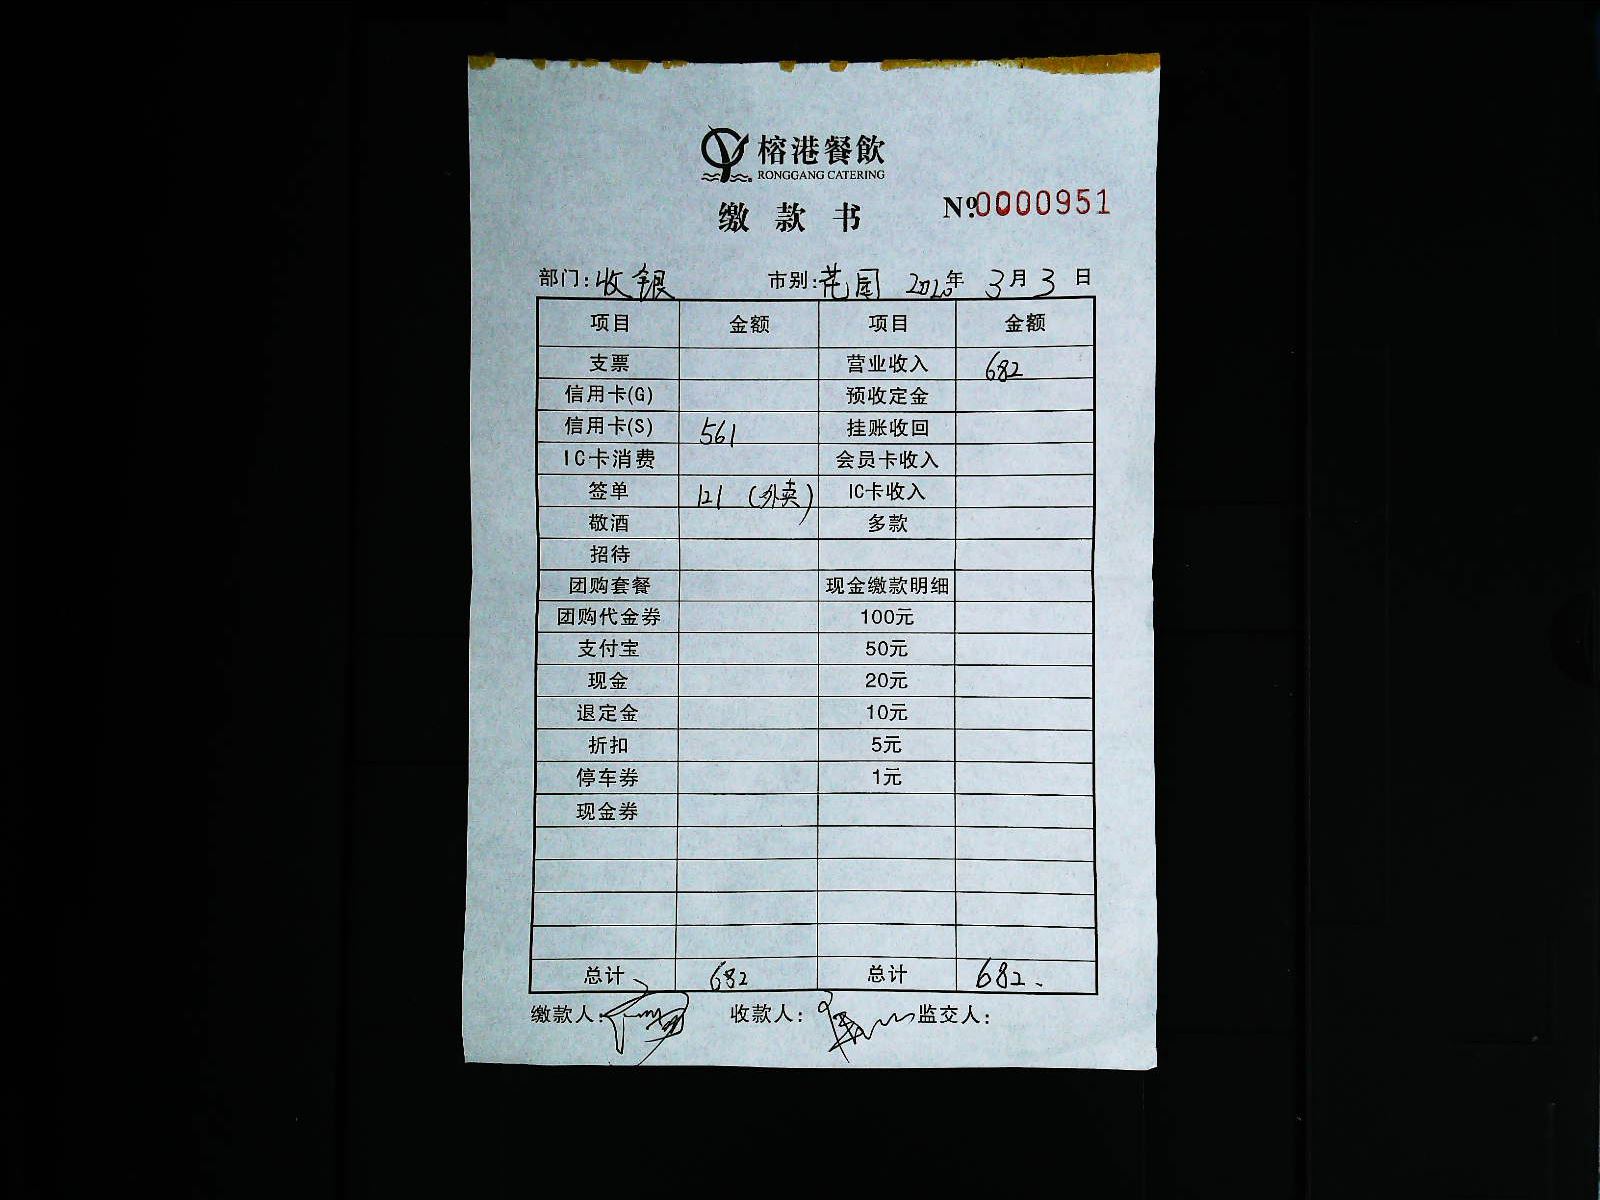 榕港餐飲
RONGGANG CATERING
缴款书 №0000951
部门:收银 市别:花园 2020年3月3日
项目 金额 项目 金额
支票 营业收入 682
信用卡(G) 预收定金
信用卡(S) 561 挂账收回
IC卡消费 会员卡收入
签单 121 (外卖) IC卡收入
敬酒 多款
招待
团购套餐 现金缴款明细
团购代金券 100元
支付宝 50元
现金 20元
退定金 10元
折扣 5元
停车券 1元
现金券
总计 682 总计 682.
缴款人: 收款人: 监交人: